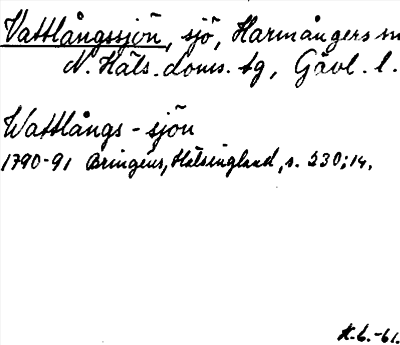 Vattlångssjön, sjö, Harmångers sn
N. Häls. doms. tg, Gävl. l.
Wattlångs-sjön
1790-91 Bringéus, Hälsingland, s. 230; 14.
K.L.-61.